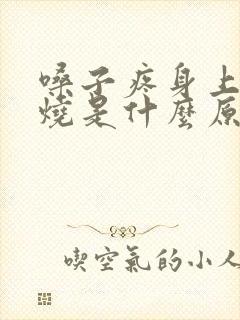 嗓子疼身上
燒是什麼原
喫空氣的小人